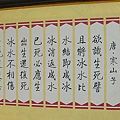 唐 寒山子
欲識生死譬
且將冰水比
水結即成冰
冰消返成水
已死必應生
出生還復死
冰水不相傷